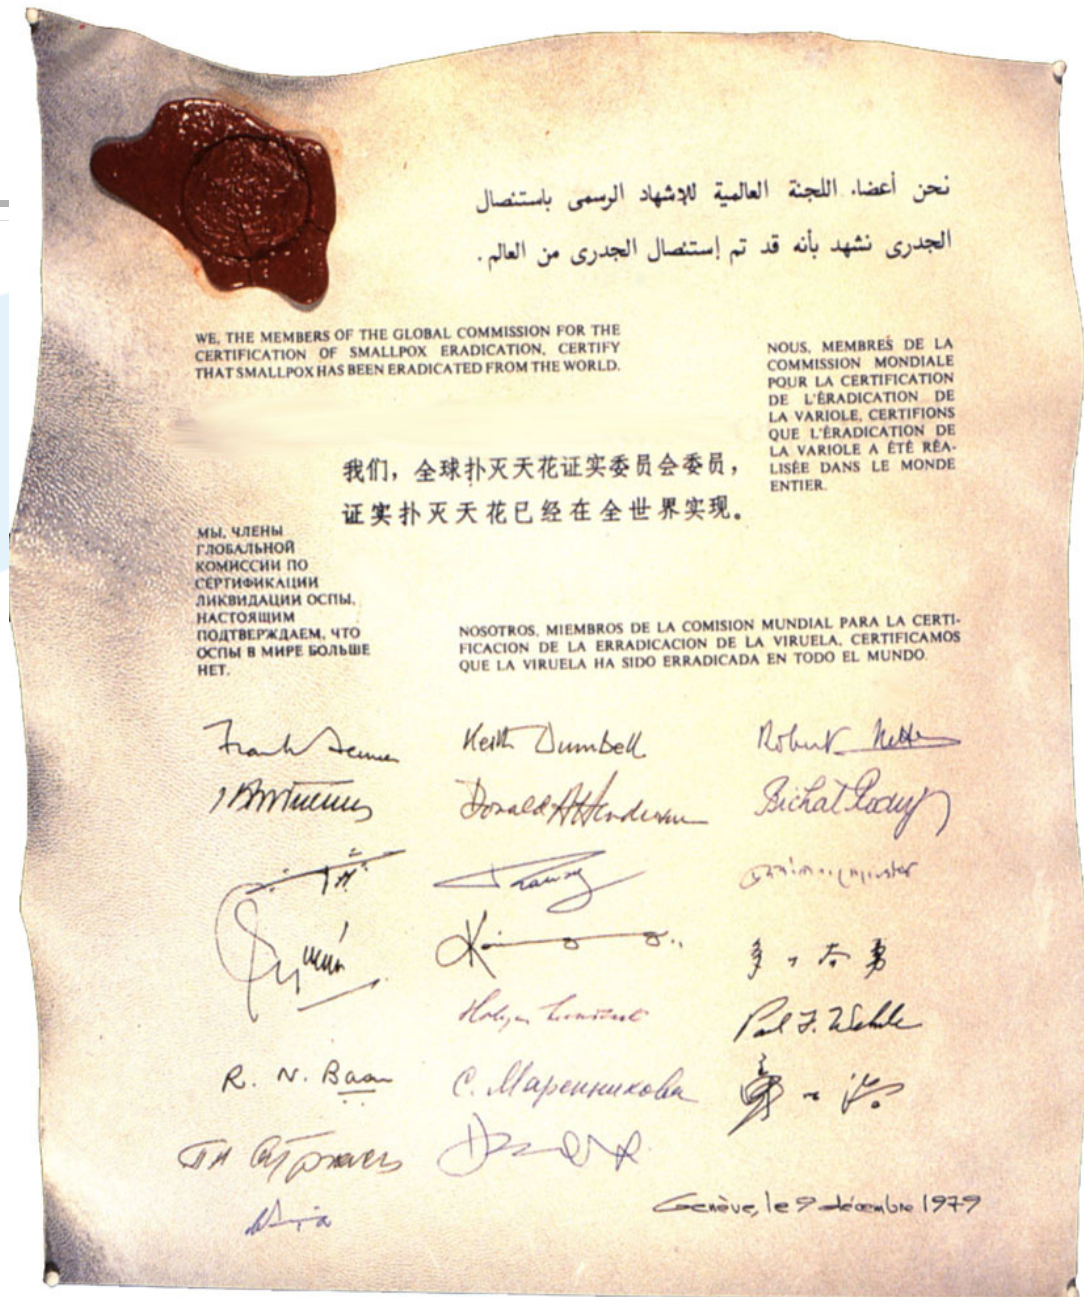 نحن أعضاء اللجنة العالمية للإشهاد الرسمى باستئصال
الجدرى نشهد بأنه قد تم إستئصال الجدرى من العالم.
WE, THE MEMBERS OF THE GLOBAL COMMISSION FOR THE
CERTIFICATION OF SMALLPOX ERADICATION, CERTIFY
THAT SMALLPOX HAS BEEN ERADICATED FROM THE WORLD.
NOUS, MEMBRES DE LA
COMMISSION MONDIALE
POUR LA CERTIFICATION
DE L'ÉRADICATION DE
LA VARIOLE, CERTIFIONS
QUE L'ÉRADICATION DE
LA VARIOLE A ÉTÉ RÉA-
LISÉE DANS LE MONDE
ENTIER.
我们，全球扑灭天花证实委员会委员，
证实扑灭天花已经在全世界实现。
МЫ, ЧЛЕНЫ
ГЛОБАЛЬНОЙ
КОМИССИИ ПО
СЕРТИФИКАЦИИ
ЛИКВИДАЦИИ ОСПЫ,
НАСТОЯЩИМ
ПОДТВЕРЖДАЕМ, ЧТО
ОСПЫ В МИРЕ БОЛЬШЕ
НЕТ.
NOSOTROS, MIEMBROS DE LA COMISION MUNDIAL PARA LA CERTI-
FICACION DE LA ERRADICACION DE LA VIRUELA, CERTIFICAMOS
QUE LA VIRUELA HA SIDO ERRADICADA EN TODO EL MUNDO.
Frank Fenner
Keith Dumbell
Robert Netter
Donald A Henderson
Bichat Rodrigues
Paul F. Wehrle
R. N. Basu
С. Маренникова
Genève, le 9 décembre 1979